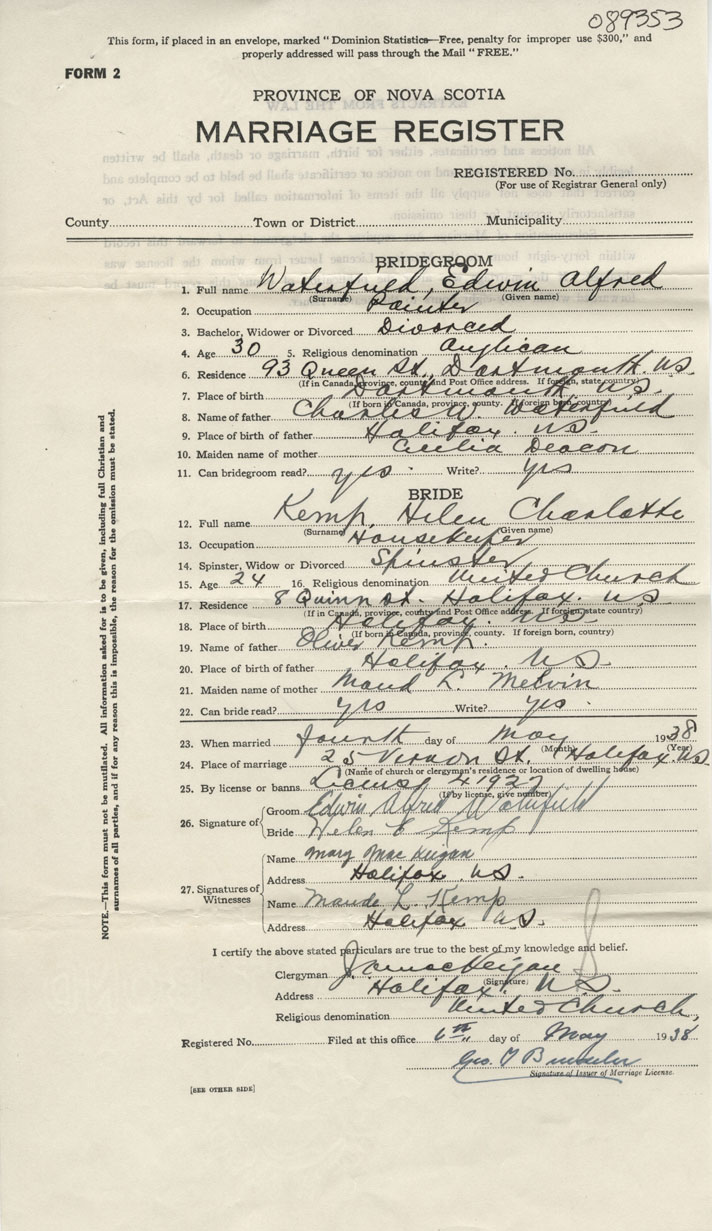 089353
This form, if placed in an envelope, marked "Dominion Statistics—Free, penalty for improper use $300," and
properly addressed will pass through the Mail "FREE."
FORM 2
PROVINCE OF NOVA SCOTIA
MARRIAGE REGISTER
REGISTERED No.
(For use of Registrar General only)
County Town or District Municipality
BRIDEGROOM
1. Full name Waterfield, Edwin Alfred
(Surname) (Given name)
2. Occupation Painter
3. Bachelor, Widower or Divorced Divorced
4. Age 30 5. Religious denomination Anglican
6. Residence 93 Queen St., Dartmouth. N.S.
(If in Canada, province, county and Post Office address. If foreign, state country)
7. Place of birth Dartmouth N.S.
(If born in Canada, province, county. If foreign born, country)
8. Name of father Charles Waterfield
9. Place of birth of father Halifax. N.S.
10. Maiden name of mother Cecilia Deacon
11. Can bridegroom read? yes. Write? yes
BRIDE
12. Full name Kemp, Helen Charlotte
(Surname) (Given name)
13. Occupation Housekeeper
14. Spinster, Widow or Divorced Spinster
15. Age 24 16. Religious denomination United Church
17. Residence 8 Quinn St. Halifax. N.S
(If in Canada, province, county and Post Office address. If foreign, state country)
18. Place of birth Halifax. N.S.
(If born in Canada, province, county. If foreign born, country)
19. Name of father Oliver Kemp.
20. Place of birth of father Halifax. N.S.
21. Maiden name of mother Maud L. Melvin
22. Can bride read? yes Write? yes.
23. When married fourth day of May 1938
(Month) (Year)
24. Place of marriage 25 Vernon St. Halifax. N.S.
(Name of church or clergyman's residence or location of dwelling house)
25. By license or banns License 41937
(If by license, give number)
26. Signature of Groom Edwin Alfred Waterfield
Bride Helen C Kemp
27. Signatures of Witnesses Name Mary MacKeigan
Address Halifax N.S.
Name Maude L. Kemp
Address Halifax N.S.
I certify the above stated particulars are true to the best of my knowledge and belief.
Clergyman MacKeigan
(Signature)
Address Halifax. N.S.
Religious denomination United Church,
Registered No. Filed at this office 6th day of May 1938
Geo. T
Signature of Issuer of Marriage License.
[SEE OTHER SIDE]
NOTE.—This form must not be mutilated. All information asked for is to be given, including full Christian and
surnames of all parties, and if for any reason this is impossible, the reason for the omission must be stated.